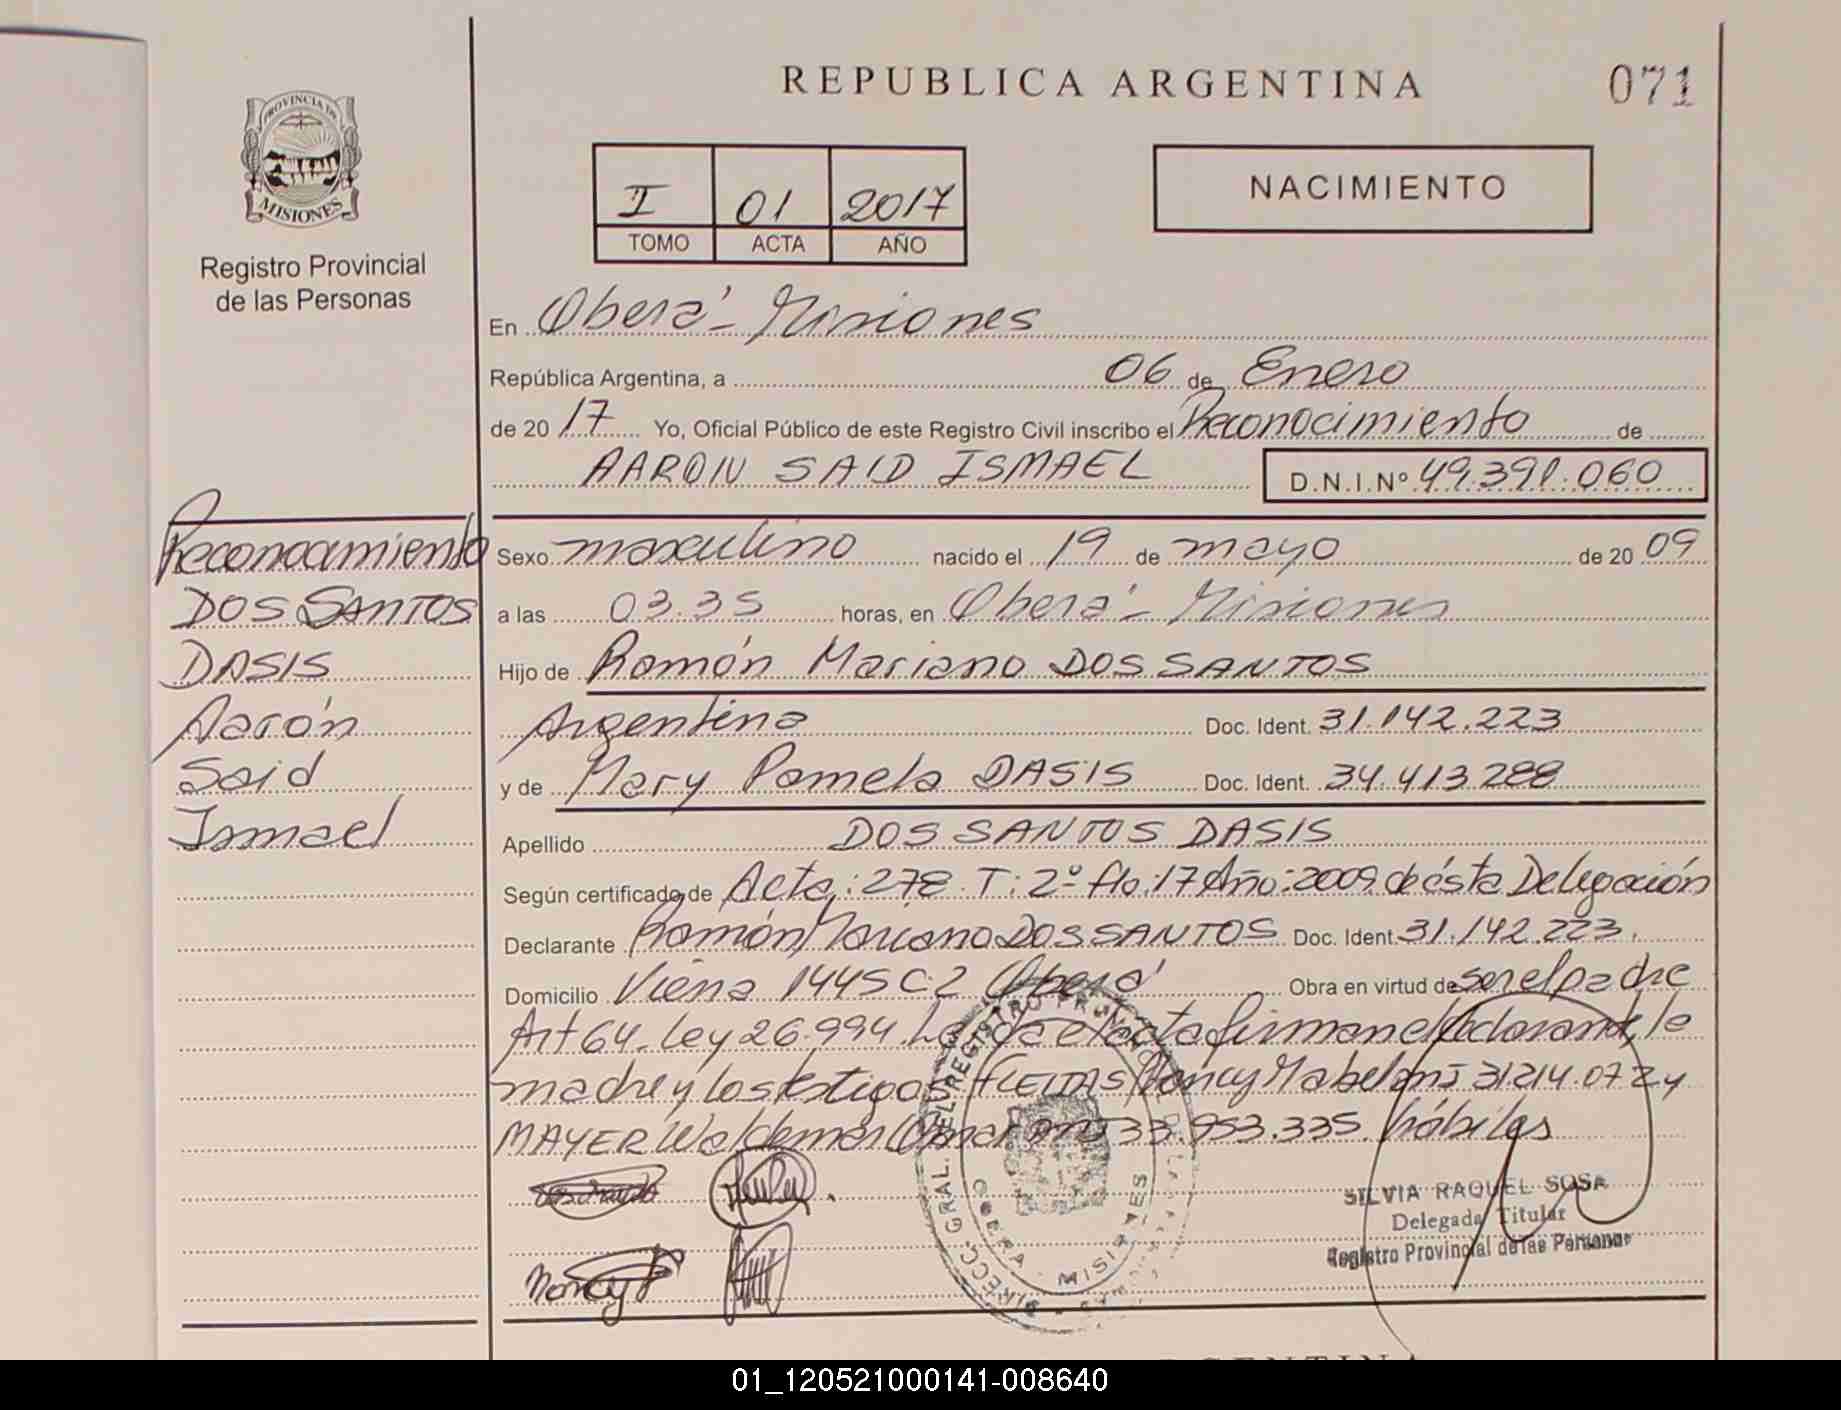 REPUBLICA ARGENTINA
071
PROVINCIA DE
MISIONES
Registro Provincial
de las Personas
I 01 2017
TOMO ACTA AÑO
NACIMIENTO
En Oberá - Misiones
República Argentina, a 06 de Enero
de 2017 Yo, Oficial Público de este Registro Civil inscribo el Reconocimiento de
AARON SAID ISMAEL D.N.I.Nº 49.391.060
Reconocimiento
DOS SANTOS
DASIS
Aarón
Said
Ismael
Sexo masculino nacido el 19 de mayo de 2009
a las 03.35 horas, en Oberá - Misiones
Hijo de Ramón Mariano DOS SANTOS
Argentina Doc. Ident. 31.142.223
y de Mary Pamela DASIS Doc. Ident. 34.413.288
Apellido DOS SANTOS DASIS
Según certificado de Acta: 278 T: 2º flo: 17 Año: 2009 de ésta Delegación
Declarante Ramón Mariano DOS SANTOS Doc. Ident. 31.142.223.
Domicilio Viena 1445 C:2 Oberá Obra en virtud de ser el padre
Art 64. Ley 26.994. Leída el acta firman el declarante, la
madre y los testigos FLEITAS Nancy Mabel DNI 31214.072 y
MAYER Waldemar Omar DNI 33.953.335 hábiles
Nancy F
DIRECC. GRAL. DEL REGISTRO PROVINCIAL DE LAS
OBERA - MISIONES
SILVIA RAQUEL SOSA
Delegada Titular
Registro Provincial de las Personas
ARGENTINA
01_120521000141-008640